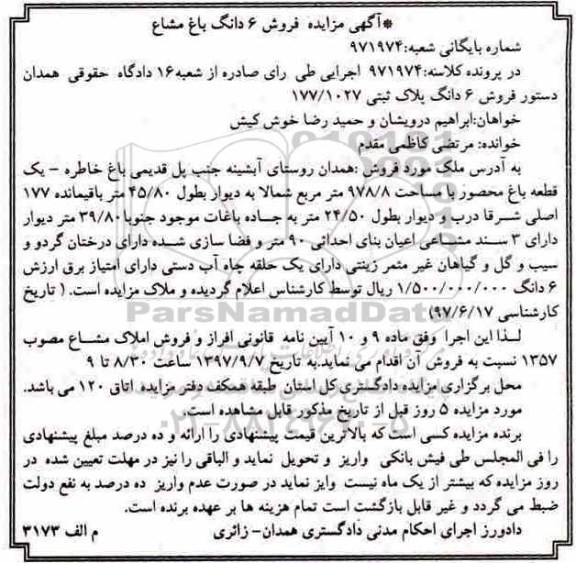 *آگهی مزایده فروش ۶ دانگ باغ مشاع
شماره بایگانی شعبه:۹۷۱۹۷۴
در پرونده کلاسنه:۹۷۱۹۷۴ اجرایی طی رای صادره از شعبه۱۶ دادگاه حقوقی همدان
دستور فروش ۶ دانگ پلاک ثبتی ۱۷۷/۱۰۲۷
خواهان:ابراهیم درویشان و حمید رضا خوش کیش
خوانده: مرتضی کاظمی مقدم
به آدرس ملک مورد فروش :همدان روستای آبشینه جنب پل قدیمی باغ خاطره - یک
قطعه باغ محصور با مساحت ۹۷۸/۸ متر مربع شمالا به دیوار بطول ۴۵/۸۰ متر باقیمانده ۱۷۷
اصلی شرقا درب و دیوار بطول ۲۴/۵۰ متر به جاده باغات موجود جنوبا ۳۹/۸۰ متر دیوار
دارای ۳ سند مشاعی اعیان بنای احداثی ۹۰ متر و فضا سازی شده دارای درختان گردو و
سیب و گل و گیاهان غیر مثمر زینتی دارای یک حلقه چاه آب دستی دارای امتیاز برق ارزش
۶ دانگ ۱/۵۰۰/۰۰۰/۰۰۰ ریال توسط کارشناس اعلام گردیده و ملاک مزایده است. ( تاریخ
کارشناسی ۹۷/۶/۱۷)
لذا این اجرا وفق ماده ۹ و ۱۰ آیین نامه قانونی افراز و فروش املاک مشاع مصوب
۱۳۵۷ نسبت به فروش آن اقدام می نماید.به تاریخ ۱۳۹۷/۹/۷ ساعت ۸/۳۰ تا ۹
محل برگزاری مزایده دادگستری کل استان طبقه همکف دفتر مزایده اتاق ۱۲۰ می باشد.
مورد مزایده ۵ روز قبل از تاریخ مذکور قابل مشاهده است.
برنده مزایده کسی است که بالاترین قیمت پیشنهادی را ارائه و ده درصد مبلغ پیشنهادی
را فی المجلس طی فیش بانکی واریز و تحویل نماید و الباقی را نیز در مهلت تعیین شده در
روز مزایده که بیشتر از یک ماه نیست وایز نماید در صورت عدم واریز ده درصد به نفع دولت
ضبط می گردد و غیر قابل بازگشت است تمام هزینه ها بر عهده برنده است.
دادورز اجرای احکام مدنی دادگستری همدان- زائری م الف ۳۱۷۳
ParsNamadData